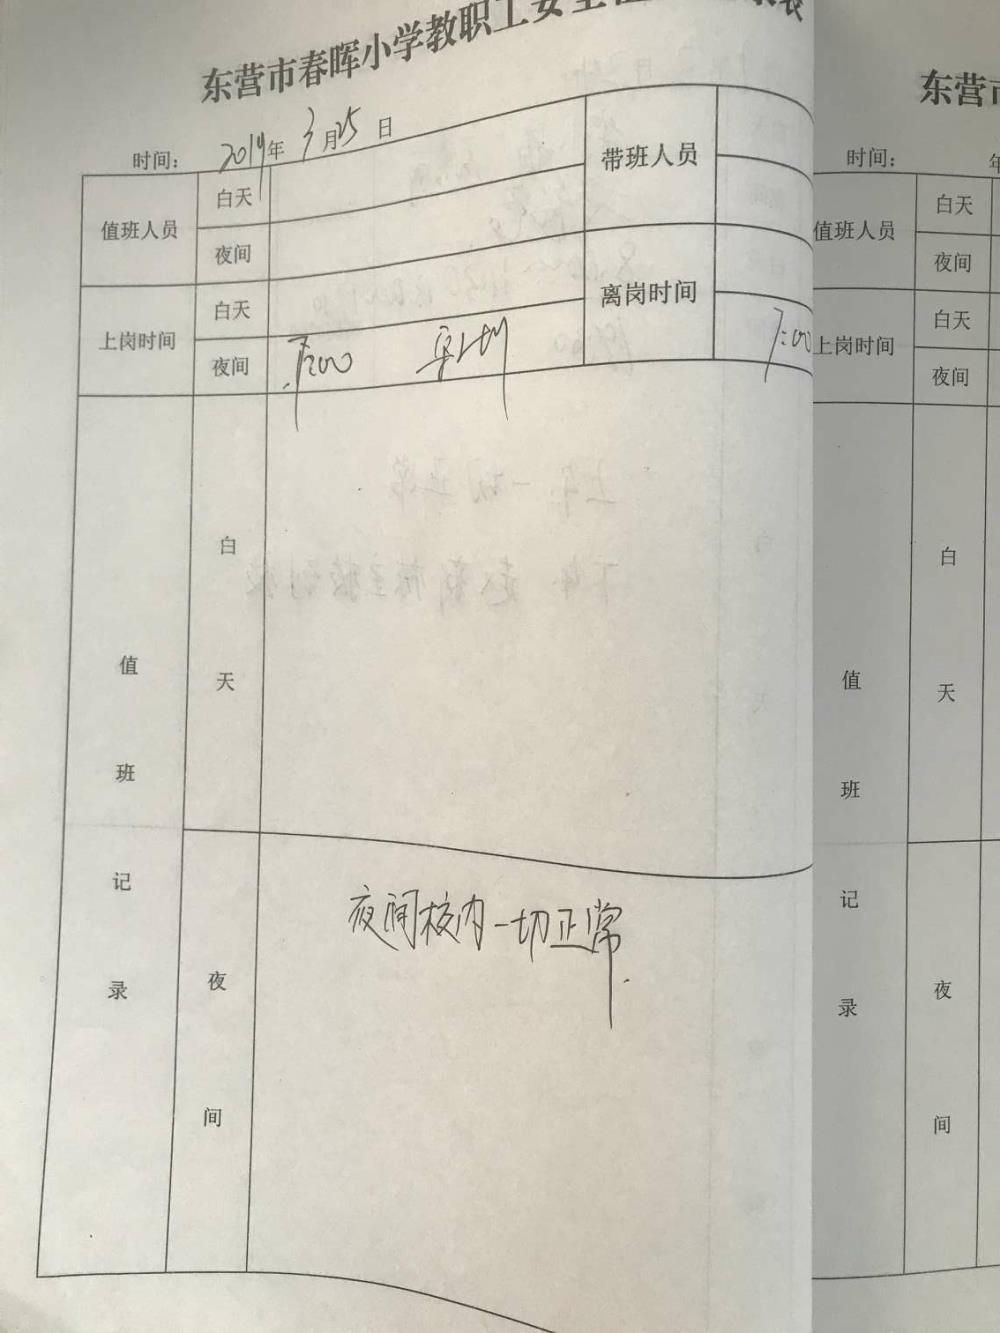 东营市春晖小学教职工安全
时间: 2019年 3月25日
值班人员 白天 带班人员
夜间
上岗时间 白天 离岗时间
夜间 7:00
值班记录 白天
夜间 夜间校内一切正常.
东营市
时间: 年
值班人员 白天
夜间
上岗时间 白天
夜间
值班记录 白天
夜间